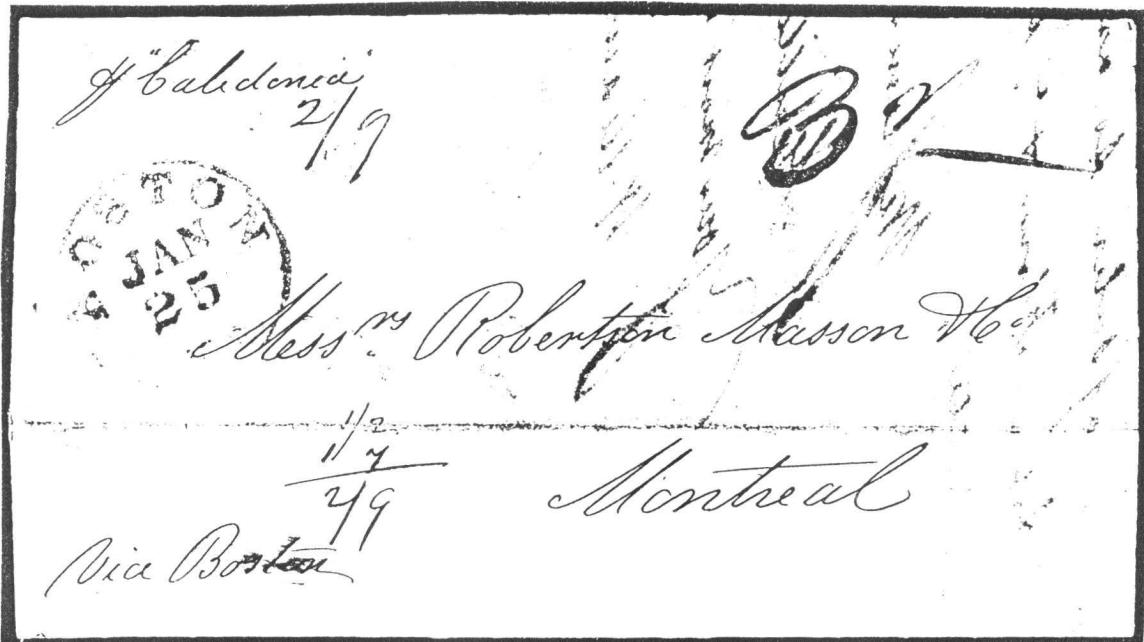 p "Caledonia"
2/9
BOSTON
JAN
25
Mess.rs Robertson Masson & Co
1/2
1/7
2/9
Montreal
Via Boston